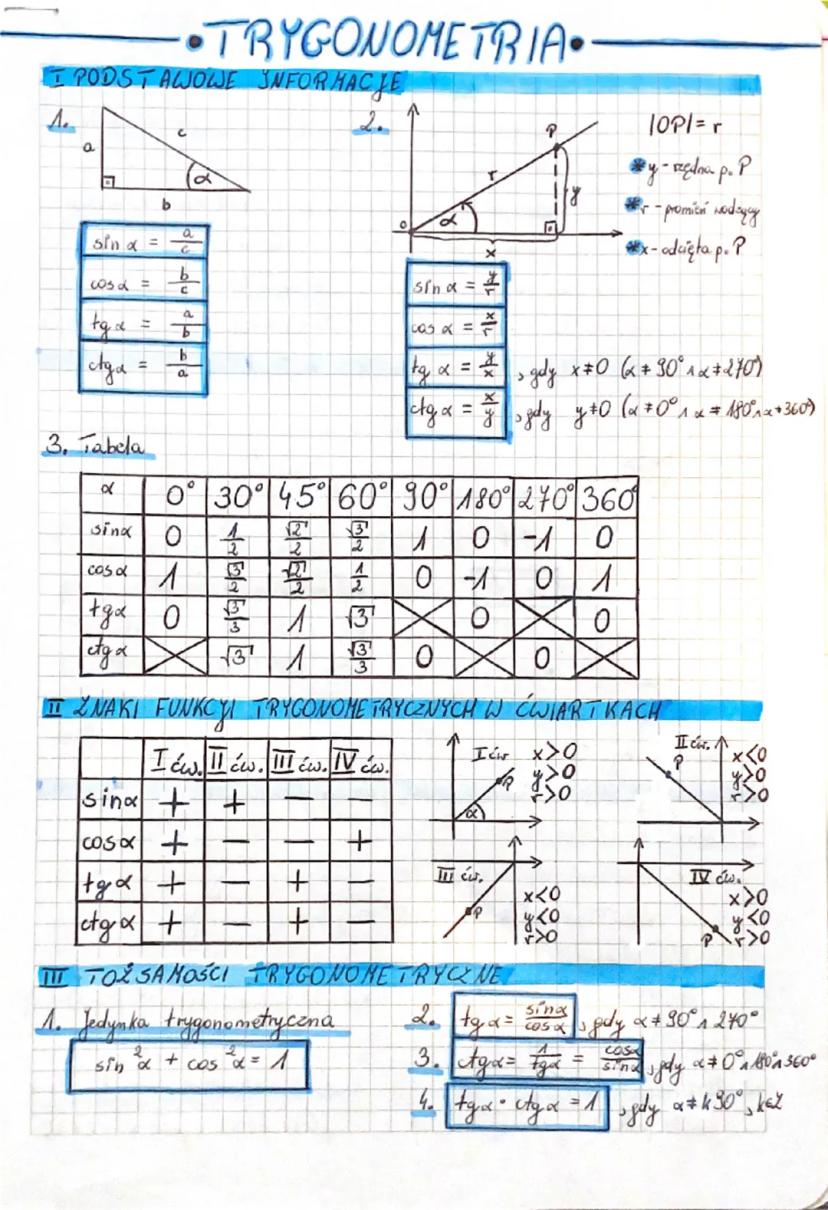 •TRYGONOMETRIA•
I PODSTAWOWE INFORMACJE
1.
a
c
α
b
sin α = a/c
cos α = b/c
tg α = a/b
ctg α = b/a
2.
P
r
y
α
0
x
|OP| = r
* y - rzędna p. P
* r - promień wodzący
* x - odcięta p. P
sin α = y/r
cos α = x/r
tg α = y/x , gdy x ≠ 0 (α ≠ 90° ∧ α ≠ 270°)
ctg α = x/y , gdy y ≠ 0 (α ≠ 0° ∧ α ≠ 180° ∧ α ≠ 360°)
3. Tabela
α 0° 30° 45° 60° 90° 180° 270° 360°
sin α 0 1/2 √2/2 √3/2 1 0 -1 0
cos α 1 √3/2 √2/2 1/2 0 -1 0 1
tg α 0 √3/3 1 √3 0 0
ctg α √3 1 √3/3 0 0
II ZNAKI FUNKCJI TRYGONOMETRYCZNYCH W ĆWIARTKACH
I ćw. II ćw. III ćw. IV ćw.
sin α + + − −
cos α + − − +
tg α + − + −
ctg α + − + −
I ćw.
P
α
x>0
y>0
r>0
II ćw.
P
x<0
y>0
r>0
III ćw.
P
x<0
y<0
r>0
IV ćw.
P
x>0
y<0
r>0
III TOŻSAMOŚCI TRYGONOMETRYCZNE
1. Jedynka trygonometryczna
sin²α + cos²α = 1
2. tg α = sin α/cos α , gdy α ≠ 90° ∧ 270°
3. ctg α = 1/tg α = cos α/sin α , gdy α ≠ 0° ∧ 180° ∧ 360°
4. tg α · ctg α = 1 , gdy α ≠ k90°, k∈Z